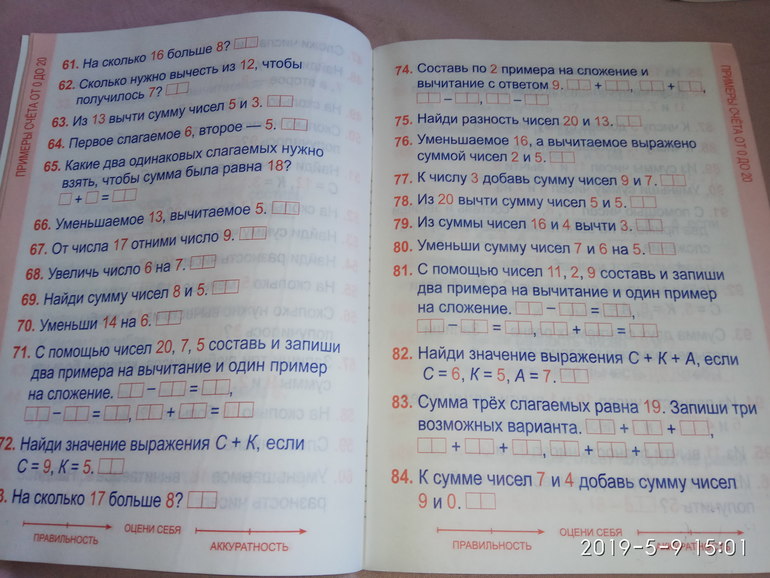 ПРИМЕРЫ СЧЁТА ОТ 0 ДО 20
61. На сколько 16 больше 8?
62. Сколько нужно вычесть из 12, чтобы
получилось 7?
63. Из 13 вычти сумму чисел 5 и 3.
64. Первое слагаемое 6, второе — 5.
65. Какие два одинаковых слагаемых нужно
взять, чтобы сумма была равна 18?
+ =
66. Уменьшаемое 13, вычитаемое 5.
67. От числа 17 отними число 9.
68. Увеличь число 6 на 7.
69. Найди сумму чисел 8 и 5.
70. Уменьши 14 на 6.
71. С помощью чисел 20, 7, 5 составь и запиши
два примера на вычитание и один пример
на сложение. − = ,
− = , + =
72. Найди значение выражения С + К, если
С = 9, К = 5.
3. На сколько 17 больше 8?
ОЦЕНИ СЕБЯ
ПРАВИЛЬНОСТЬ АККУРАТНОСТЬ
74. Составь по 2 примера на сложение и
вычитание с ответом 9. + , + ,
− , −
75. Найди разность чисел 20 и 13.
76. Уменьшаемое 16, а вычитаемое выражено
суммой чисел 2 и 5.
77. К числу 3 добавь сумму чисел 9 и 7.
78. Из 20 вычти сумму чисел 5 и 5.
79. Из суммы чисел 16 и 4 вычти 3.
80. Уменьши сумму чисел 7 и 6 на 5.
81. С помощью чисел 11, 2, 9 составь и запиши
два примера на вычитание и один пример
на сложение. − = ,
− = , + =
82. Найди значение выражения С + К + А, если
С = 6, К = 5, А = 7.
83. Сумма трёх слагаемых равна 19. Запиши три
возможных варианта. + + ,
+ + , + +
84. К сумме чисел 7 и 4 добавь сумму чисел
9 и 0.
ОЦЕНИ СЕБЯ
ПРАВИЛЬНОСТЬ АККУРАТНОСТЬ
ПРИМЕРЫ СЧЁТА ОТ 0 ДО 20
2019-5-9 15:01